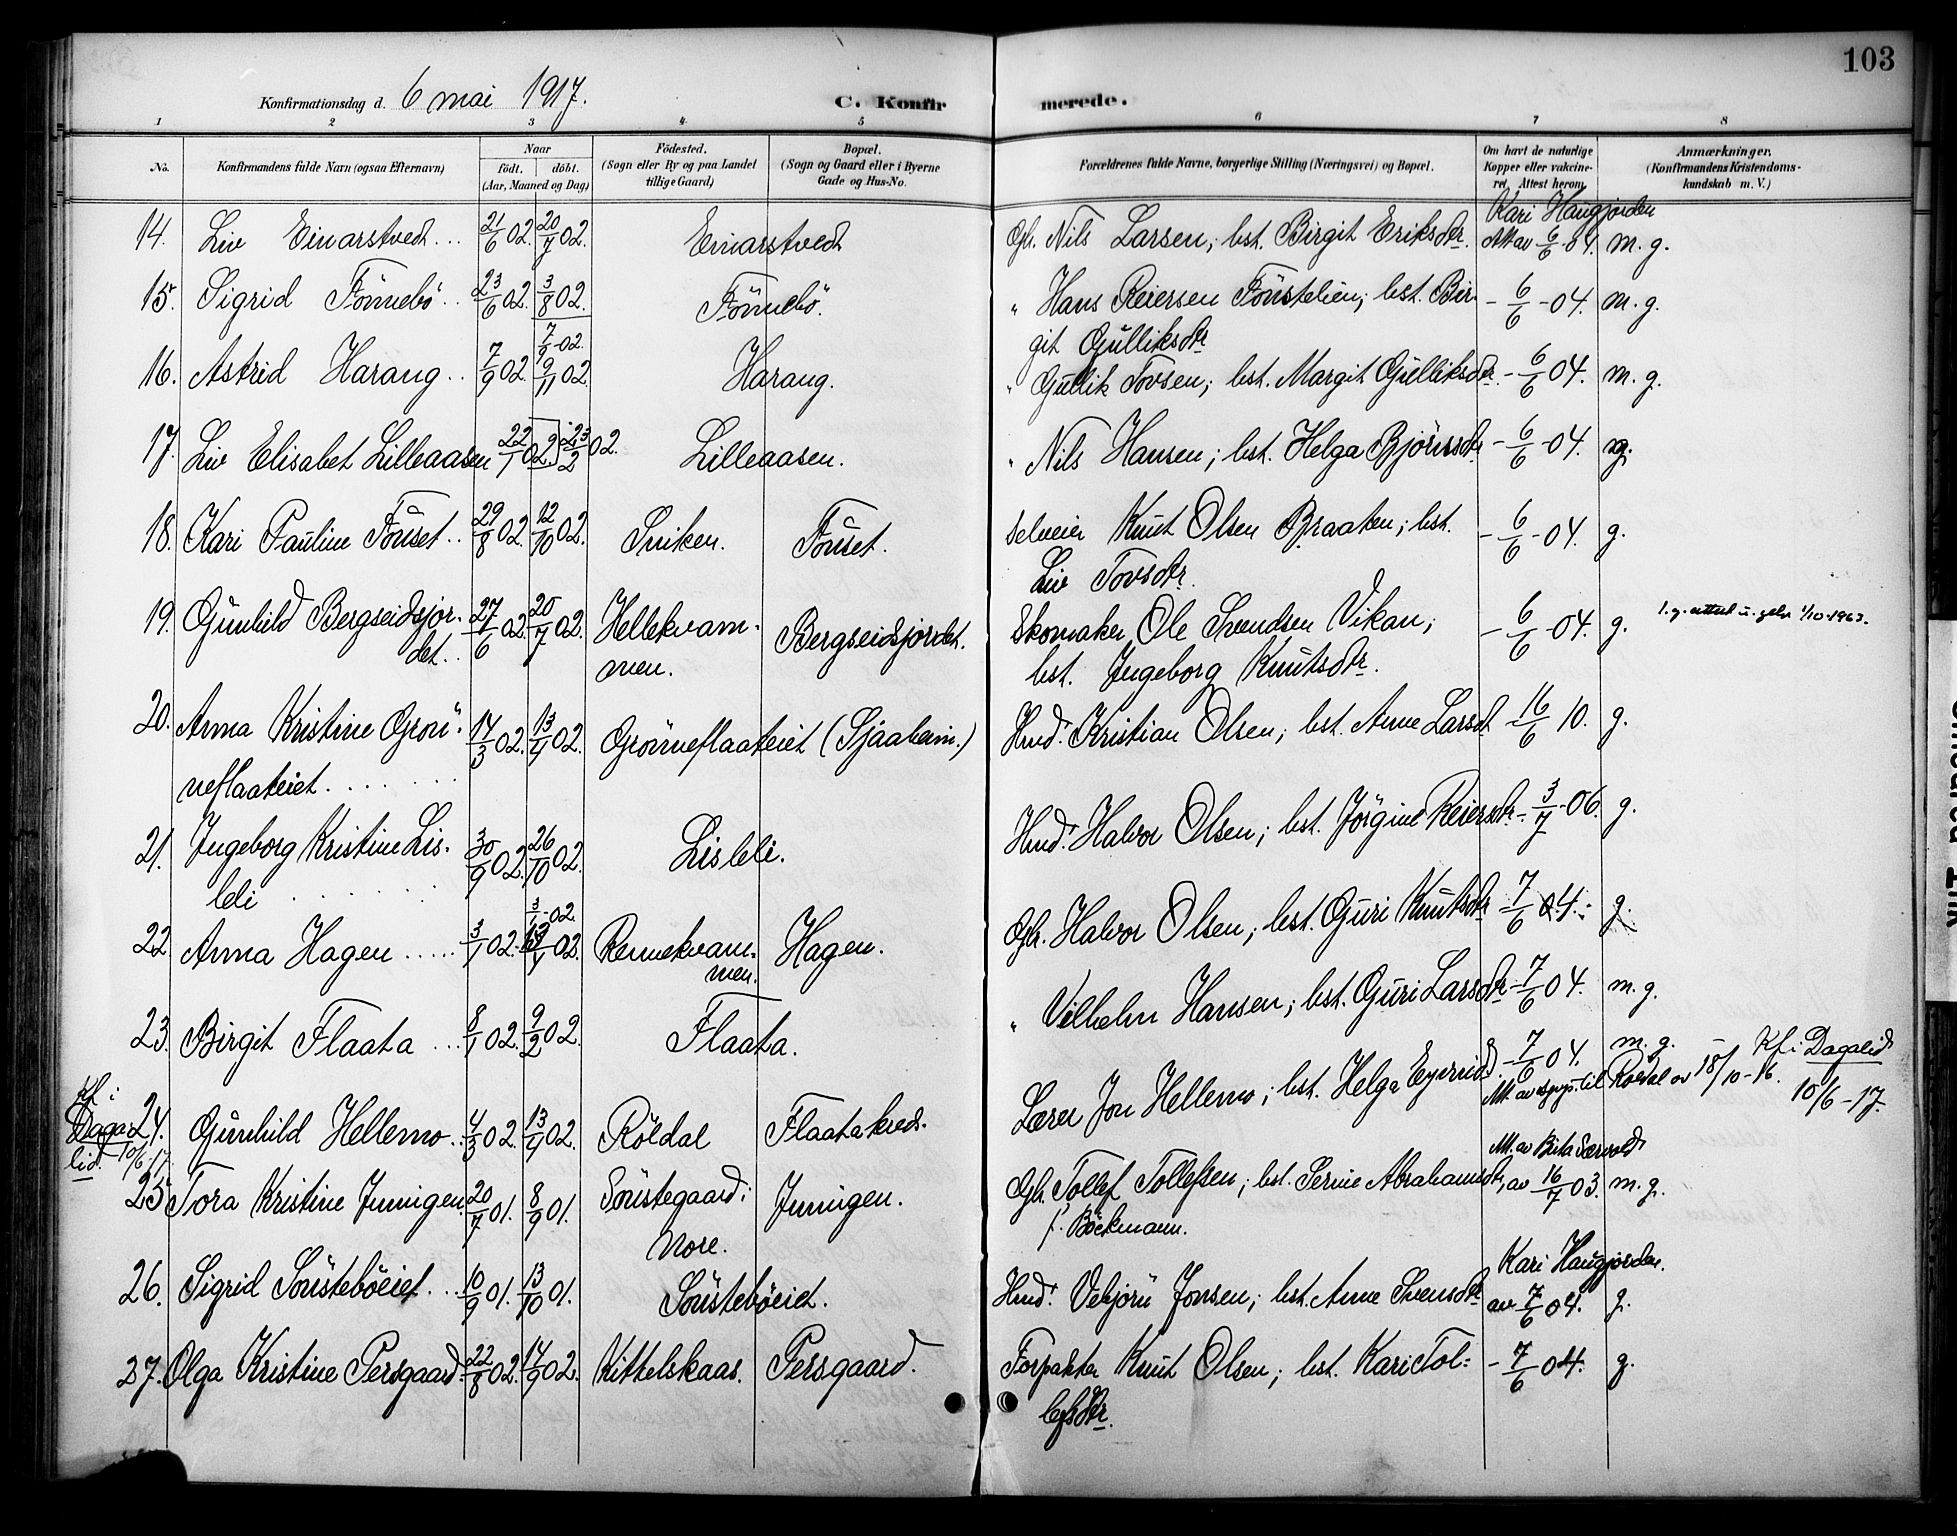 103
Konfirmationsdag d. 6 mai 1917.
C. Konfirmerede.
1 2 3 4 5 6 7 8
No. Konfirmandens fulde Navn (ogsaa Efternavn) Naar født. døbt. (Aar, Maaned og Dag) Fødested. (Sogn eller By og paa Landet tillige Gaard) Bopæl. (Sogn og Gaard eller i Byerne Gade og Hus-No. Forældrenes fulde Navne, borgerlige Stilling (Næringsvei) og Bopæl. Om havt de naturlige Kopper eller vakcineret, Attest herom. Anmærkninger, (Konfirmandens Kristendomskundskab m. V.)
Kari Haugjorden
14. Liv Einarstvedt... 21/6 02. 20/7 02. Einarstvedt Gbr. Nils Larsen; hst. Birgit Eriksdtr. Att av 6/6 04. m. g.
15. Sigrid Fönnebö.. 23/6 02. 3/8 02. Fönnebö. " Hans Reiersen Fönstelien; hst. Bir- - 6/6 - 04. m. g.
git Gulliksdtr
7/9-02.
16. Astrid Harang.. 7/9 02. 9/11 02. Harang. " Gullik Tovsen; hst. Margit Gulliksdtr. - 6/6 04. m. g.
17. Liv Elisabet Lilleaasen 22/1 02. 23/2 02. Lilleaasen. " Nils Hansen; hst. Helga Björnsdtr - 6/6 - 04. g.
18. Kari Pauline Fönset.. 29/8 02. 12/10 02. Sniken. Fönset. Selveier Knut Olsen Braaten; hst. - 6/6 - 04. g.
Liv Tovsdtr.
19. Gunhild Bergseidsjor- 27/6 02. 20/7 02. Hellekvam- Bergseidsjordet. Skomaker Ole Svendsen Vikan; - 6/6 - 04. g. 1/10-1963.
det.. men. hst. Ingeborg Knutsdtr.
20. Anna Kristine Grön- 14/3 02. 13/4 02. Grönneflaateiet (Sjaaheim.) Hmd. Kristian Olsen; hst. Anne Larsdt - 16/6 10. g.
neflaateiet.....
21. Ingeborg Kristine Lis- 30/9 02. 26/10 02. Lisleli. Hmd. Halvor Olsen; hst. Jörgine Reiersdtr - 3/7 - 06. g.
leli
3/1-02.
22. Anna Hagen..... 3/1 02. 02. Rennekvam- Hagen. Gbr. Halvor Olsen; hst. Guri Knutsdtr 7/6 04. g.
men.
23. Birgit Flaata... 8/1 02. 9/2 02. Flaata. " Vilhelm Hansen; hst. Guri Larsdtr - 7/6 04. m. g.
Kf. i Dagalid. 10/6-17. 24. Gunhild Hellemo.. 4/3 02. 13/4 02. Röldal Flaata kreds. Lærer Jon Hellemo; hst. Helga Eyvindsd. - 7/6 04. m. g. Kf. i Dagalid
Röldal av 18/10-16. 10/6-17.
25. Tora Kristine Juningen. 20/7 01. 8/9 01. Sönstegaard i Juningen. Gbr. Tollef Tollefsen; hst. Serine Abrahamsdtr, av 16/7 03. m. g.
Nore. f. Böckmann.
Kari Haugjorden.
26. Sigrid Sönsteböeiet... 10/9 01. 13/10 01. Sönsteböeiet. Hmd. Vebjörn Jonsen; hst. Anne Svensdtr av 7/6 04. g.
27. Olga Kristine Persgaard. 22/8 02. 14/9 02. Kittelskaas. Persgaard. Forpakter Knut Olsen; hst. Kari Tol- - 7/6 04. g.
lefsdtr.